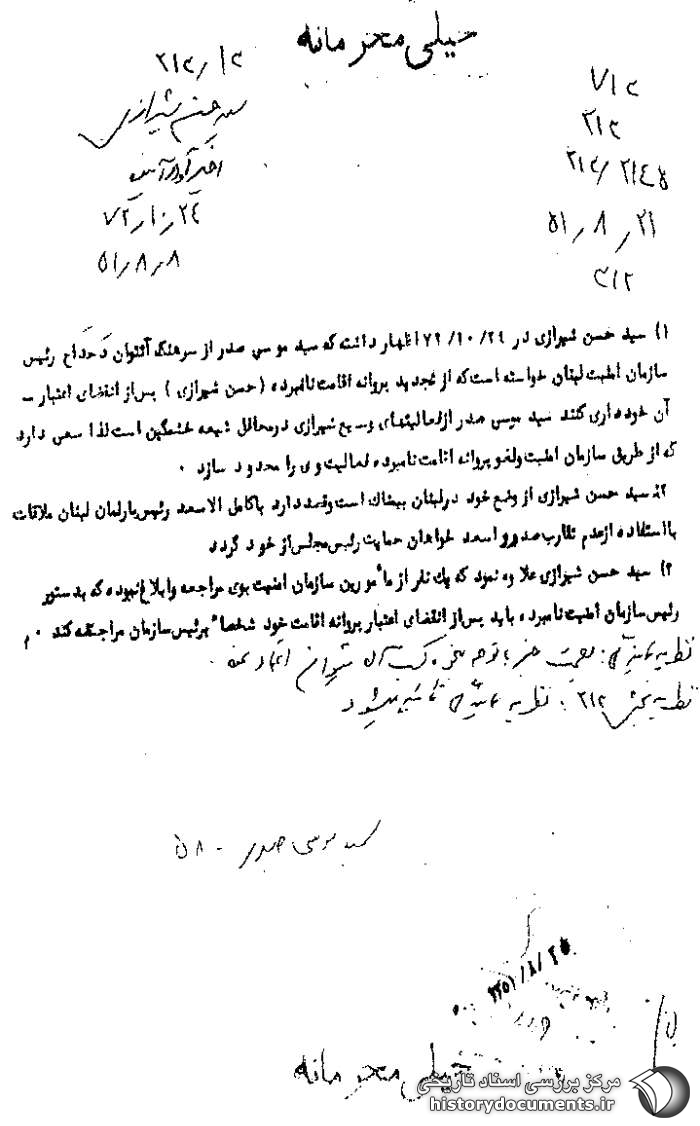 خیلی محرمانه
۷۱۲
۳۱۲
۲۱۲/۲۱۴۵
۲۱ر۸ر۵۱
۳۱۲
سید حسن شیرازی
۲۴ر۱۰ر۷۲
۸ر۸ر۵۱
۱) سید حسن شیرازی در ۲۴/ ۱۰/ ۷۲ اظهار داشت که سید موسی صدر از سرهنگ آنتوان دحداح رئیس
سازمان امنیت لبنان خواسته است که از تجدید پروانه اقامت نامبرده (حسن شیرازی) پس از انقضای اعتبار –
آن خودداری کنند سید موسی صدر از فعالیتهای وسیع شیرازی در محافل شیعه خشمگین است لذا سعی دارد
که از طریق سازمان امنیت و لغو پروانه اقامت نامبرده فعالیت وی را محدود سازد ۰
۲: سید حسن شیرازی از وضع خود در لبنان بیمناک است و قصد دارد با کامل الاسعد رئیس پارلمان لبنان ملاقات
با استفاده از عدم تقارب صدر و اسعد خواهان حمایت رئیس مجلس از خود گردد
۳) سید حسن شیرازی علاوه نمود که یک نفر از مأمورین سازمان امنیت بوی مراجعه و ابلاغ نموده که بدستور
رئیس سازمان امنیت نامبرده باید پس از انقضای اعتبار پروانه اقامت خود شخصاً برئیس سازمان مراجعه کند ۰ م
نظریه نمایندگی: صحت خبر با توجه بنحوه کسب آن
نظریه بخش ۳۱۲: نظریه نمایندگی تأیید میشود
سید موسی صدر - ۵۸
خیلی محرمانه
مرکز بررسی اسناد تاریخی
historydocuments.ir